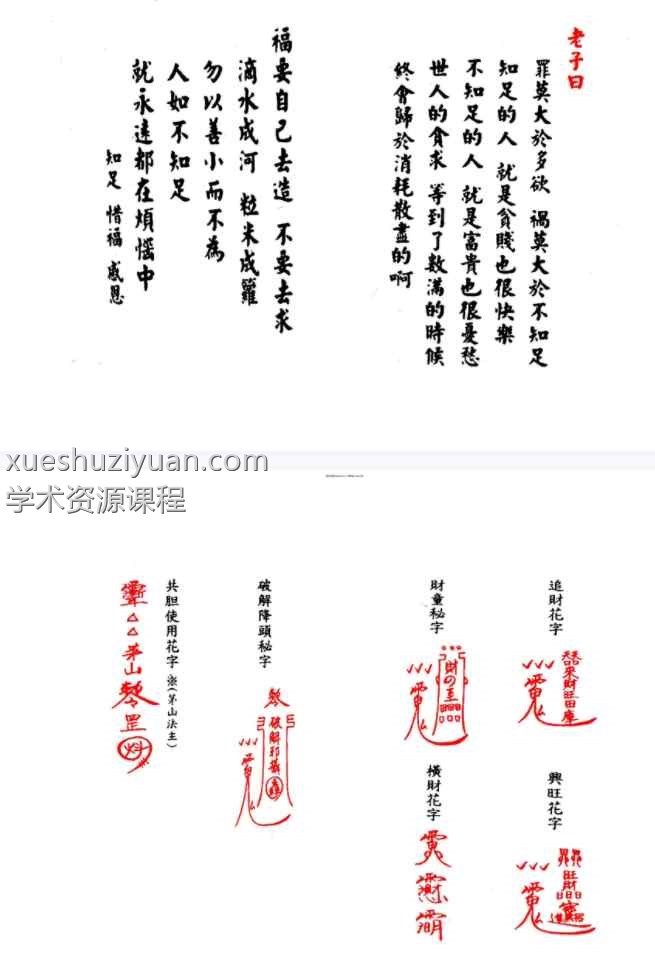 老子曰
罪莫大於多欲 禍莫大於不知足
知足的人 就是貧賤也很快樂
不知足的人 就是富貴也很憂愁
世人的貪求 等到了数滿的時候
終會歸於消耗散盡的啊
福要自己去造 不要去求
滴水成河 粒米成籮
勿以善小而不為
人如不知足
就永遠都在煩惱中
知足 惜福 感恩
xueshuziyuan.com
学术资源课程
追財花字
來財旺田庫
財童秘字
財の至
破解降頭秘字
破解邪
共胆使用花字 (茅山法主)
茅山
罡
興旺花字
旺財
橫財花字